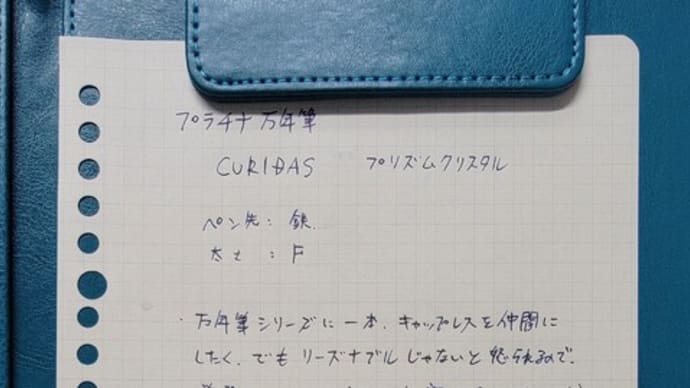 プラチナ万年筆
CURIDAS プリズムクリスタル
ペン先: 鉄.
太さ : F
・万年筆シリーズに一本、キャップレスを仲間に
したく、でもリーズナブルじゃないと怒られるので、